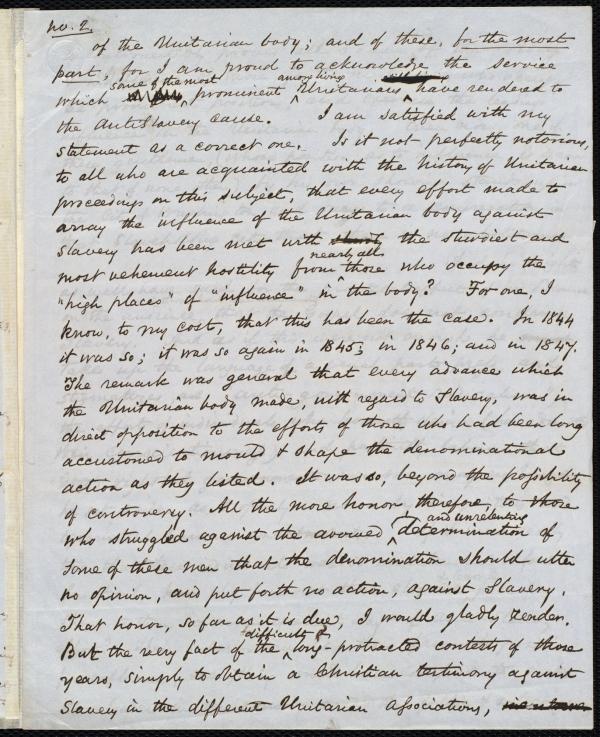 no. 2.
of the Unitarian body; and of these, for the most
part, for I am proud to acknowledge the service
which some of the most prominent among living Unitarians have rendered to
the AntiSlavery cause. I am satisfied with my
statement as a correct one. Is it not perfectly notorious,
to all who are acquainted with the history of Unitarian
proceedings on this subject, that every effort made to
array the influence of the Unitarian body against
Slavery has been met with the sturdiest and
most vehement hostility from nearly all those who occupy the
"high places" of "influence" in the body? For one, I
know, to my cost, that this has been the case. In 1844
it was so; it was so again in 1845; in 1846; and in 1847.
The remark was general that every advance which
the Unitarian body made, with regard to Slavery, was in
direct opposition to the efforts of those who had been long
accustomed to mould & shape the denominational
action as they listed. It was so, beyond the possibility
of controversy. All the more honor, therefore, to those
who struggled against the avowed and unrelenting determination of
some of these men that the denomination should utter
no opinion, and put forth no action, against Slavery.
That honor, so far as it is due, I would gladly render.
But the very fact of the difficult & long-protracted contests of those
years, simply to obtain a Christian testimony against
Slavery in the different Unitarian Associations,